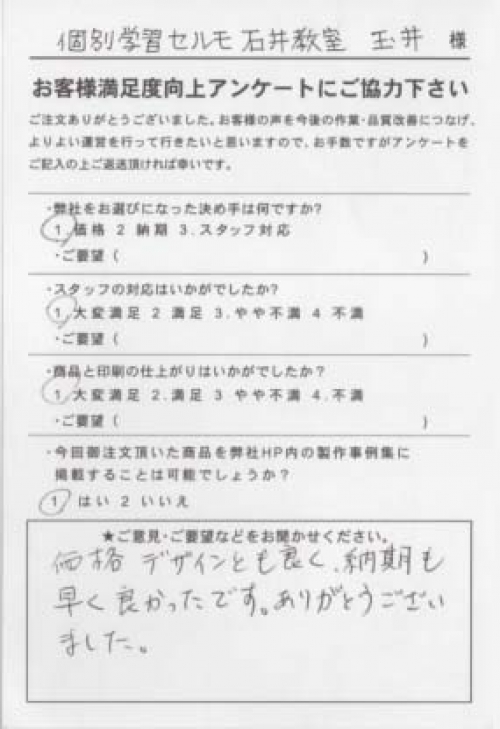 個別学習セルモ石井教室 玉井 様
お客様満足度向上アンケートにご協力下さい
ご注文ありがとうございました。お客様の声を今後の作業・品質改善につなげ、
よりよい運営を行って行きたいと思いますので、お手数ですがアンケートを
ご記入の上ご返送頂ければ幸いです。
・弊社をお選びになった決め手は何ですか?
1.価格 2 納期 3.スタッフ対応
・ご要望( )
・スタッフの対応はいかがでしたか?
1.大変満足 2 満足 3.やや不満 4 不満
・ご要望( )
・商品と印刷の仕上がりはいかがでしたか?
1.大変満足 2.満足 3 やや不満 4.不満
・ご要望( )
・今回御注文頂いた商品を弊社HP内の製作事例集に
掲載することは可能でしょうか?
1 はい 2 いいえ
★ご意見・ご要望などをお聞かせください。
価格 デザインとも良く、納期も
早く良かったです。ありがとうござい
ました。